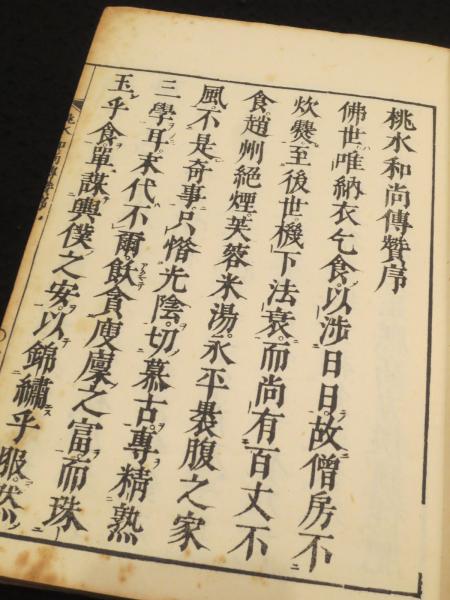 桃水和尚傳贊序
佛世唯納衣乞食以涉日日故僧房不
炊爨至後世機下法衰而尚有百丈不
食趙州絕煙芙蓉米湯永平裹腹之家
風不是奇事只惜光陰切慕古專精熟
三學耳末代不爾飲貪廋廩之富而珠
玉乎食單謀輿僕之安以錦繡乎服然
桃水和尚傳贊序